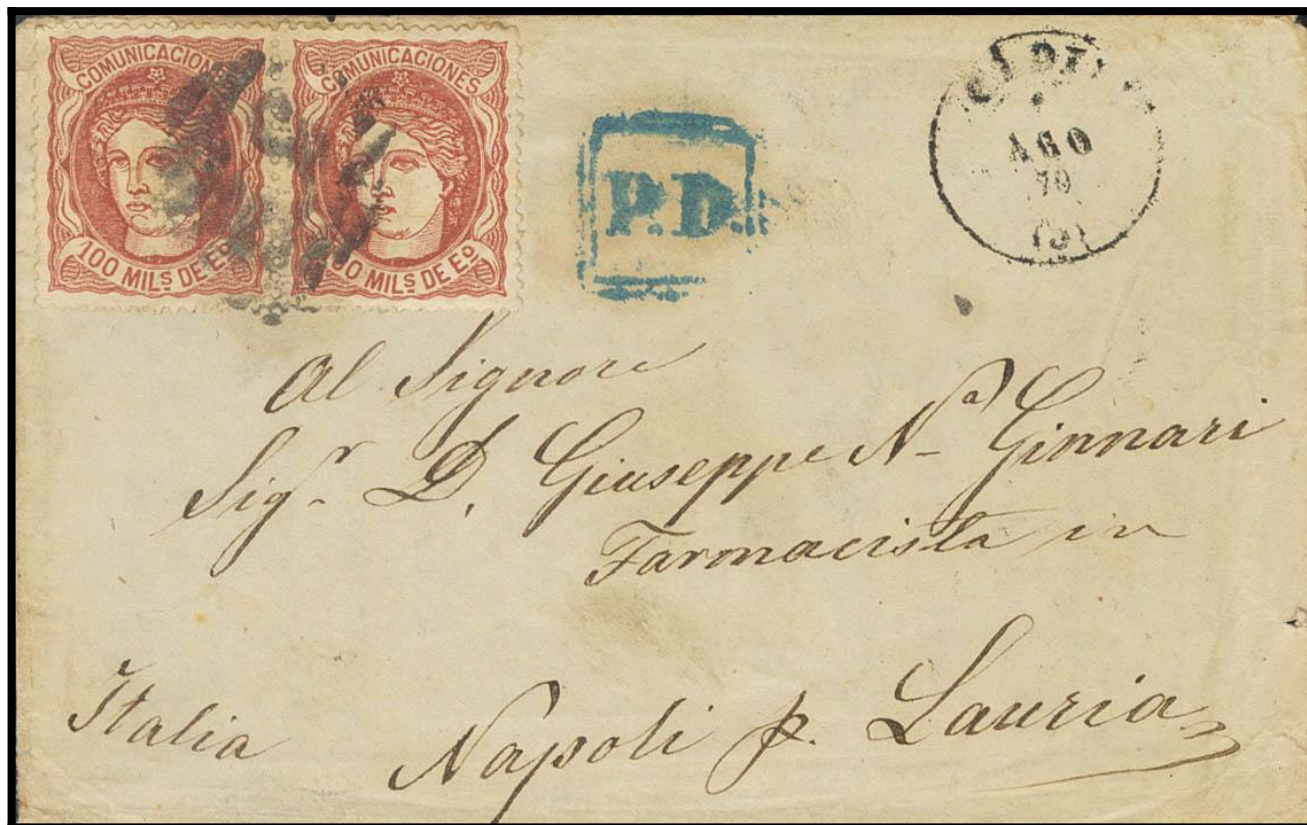 COMUNICACIONES
100 MILS DE Eº
COMUNICACIONES
100 MILS DE Eº
P.D.
AGO
70
Al Signore
Sigr. D. Giuseppe Na Ginnari
Farmacista in
Italia Napoli p. Lauria